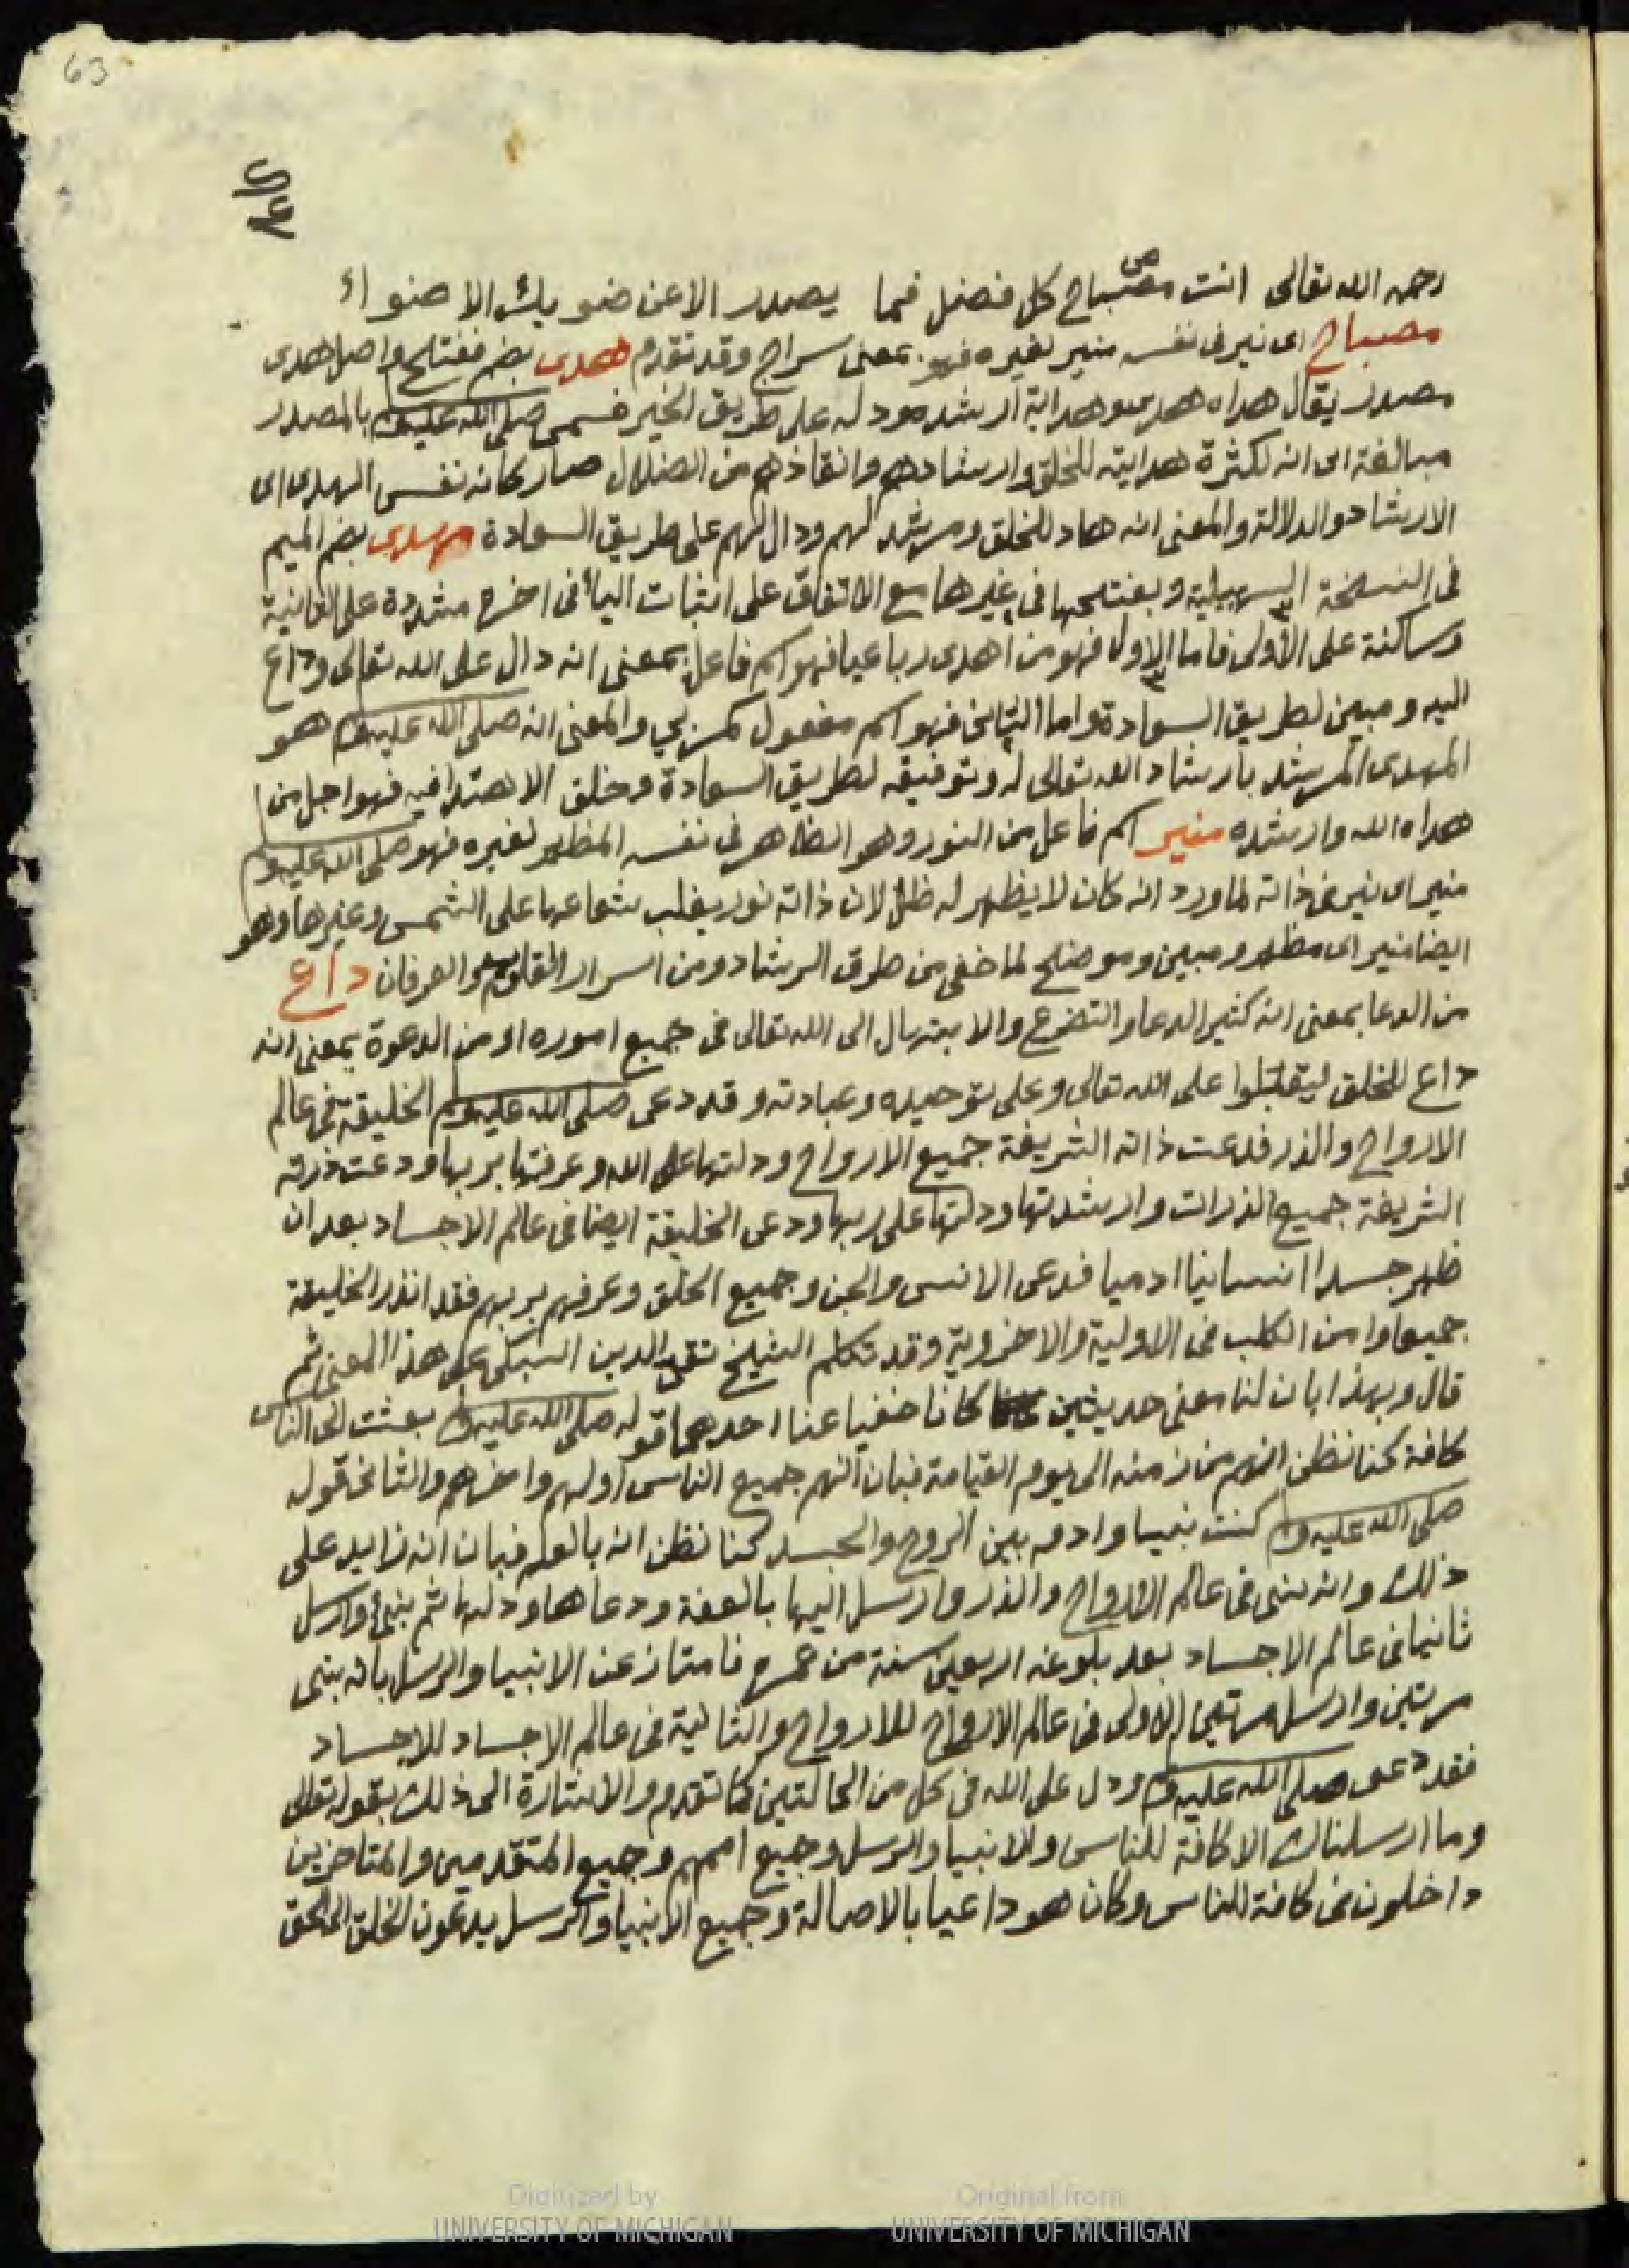 63
رحمه الله تعالى انت مصباح كل فضل فما يصدر الا عن ضويك الاضواء
مصباح اى نير فى نفسه منير لغيره فهو بمعنى سراج وقد تقدم هدى بضم ففتح واصل هدى
مصدر يقال هداه هدى وهداية ارشده ودله على طريق الخير فسمى صلى الله عليه وسلم بالمصدر
مبالغة اى انه لكثرة هدايته للخلق وارشادهم وانقاذهم من الضلال صار كانه نفس الهدى اى
الارشاد والدلالة والمعنى انه هاد للخلق ومرشد لهم ودال لهم على طريق السعادة مهدى بضم الميم
فى النسخة السهيلية وبفتحها فى غيرها مع الاتفاق على اثبات اليأ فى اخره مشددة على الثانية
وساكنة على الأولى فاما الاول فهو من اهدى رباعيا فهو اسم فاعل بمعنى انه دال على الله تعالى وداع
اليه ومبين لطريق السعادة واما الثانى فهو اسم مفعول كمرمي والمعنى انه صلى الله عليه وسلم هو
المهدى المرشد بارشاد الله تعالى له وتوفيقه لطريق السعادة وخلق الاهتدا فيه فهو اجل من
هداه الله وارشده منير اسم فاعل من النور وهو الظاهر فى نفسه المظهر لغيره فهو صلى الله عليه وسلم
منير اى نير فى ذاته لما ورد انه كان لا يظهر له ظل لان ذاته نور يغلب شعاعها على الشمس وغيرها وهو
ايضا منير اى مظهر ومبين وموضح لما خفى من طرق الرشاد ومن اسرار القلوب والعرفان داع
من الدعا بمعنى انه كثير الدعا والتضرع والابتهال الى الله تعالى فى جميع اموره او من الدعوة بمعنى انه
داع للخلق ليقبلوا على الله تعالى وعلى توحيده وعبادته وقد دعى صلى الله عليه وسلم الخليقة فى عالم
الارواح والذر فدعت ذاته الشريفة جميع الارواح ودلتها على الله وعرفتها بربها ودعت ذرته
الشريفة جميع الذرات وارشدتها ودلتها على ربها ودعى الخليقة ايضا فى عالم الاجساد بعد ان
ظهر جسدا انسانيا ادميا فدعى الانس والجن وجميع الخلق وعرفهم بربهم فقد انذر الخليقة
جميعا وامن الكلب فى الاولية والاخروية وقد تكلم الشيخ تقى الدين السبكى على هذا المعنى ثم
قال وبهذا بان لنا معنى حديثين كانا خفيا عنا احدهما قوله صلى الله عليه وسلم بعثت الى الناس
كافة كنا نظن انهم من زمنه الى يوم القيامة فبان انهم جميع الناس اولهم واخرهم والثانى قوله
صلى الله عليه وسلم كنت نبيا وادم بين الروح والجسد كنا نظن انه بالعلم فبان انه زايد على
ذلك وانه نبى فى عالم الارواح والذر وارسل اليها بالفعل ودعاها ودلها ثم نبئ وارسل
ثانيا فى عالم الاجساد بعد بلوغه اربعين سنة من عمره فامتاز عن الانبيا والرسل بانه نبى
مرتين وارسل مرتين الاولى فى عالم الارواح للارواح والثانية فى عالم الاجساد للاجساد
فقد دعى صلى الله عليه وسلم ودل على الله فى كل من الحالتين كما تقدم والاشارة الى ذلك بقوله تعالى
وما ارسلناك الا كافة للناس والانبيا والرسل وجميع اممهم وجميع المتقدمين والمتاخرين
داخلون فى كافة الناس وكان هو داعيا بالاصالة وجميع الانبيا والرسل يدعون الخلق الى الحق
Digitized by
UNIVERSITY OF MICHIGAN
Original from
UNIVERSITY OF MICHIGAN